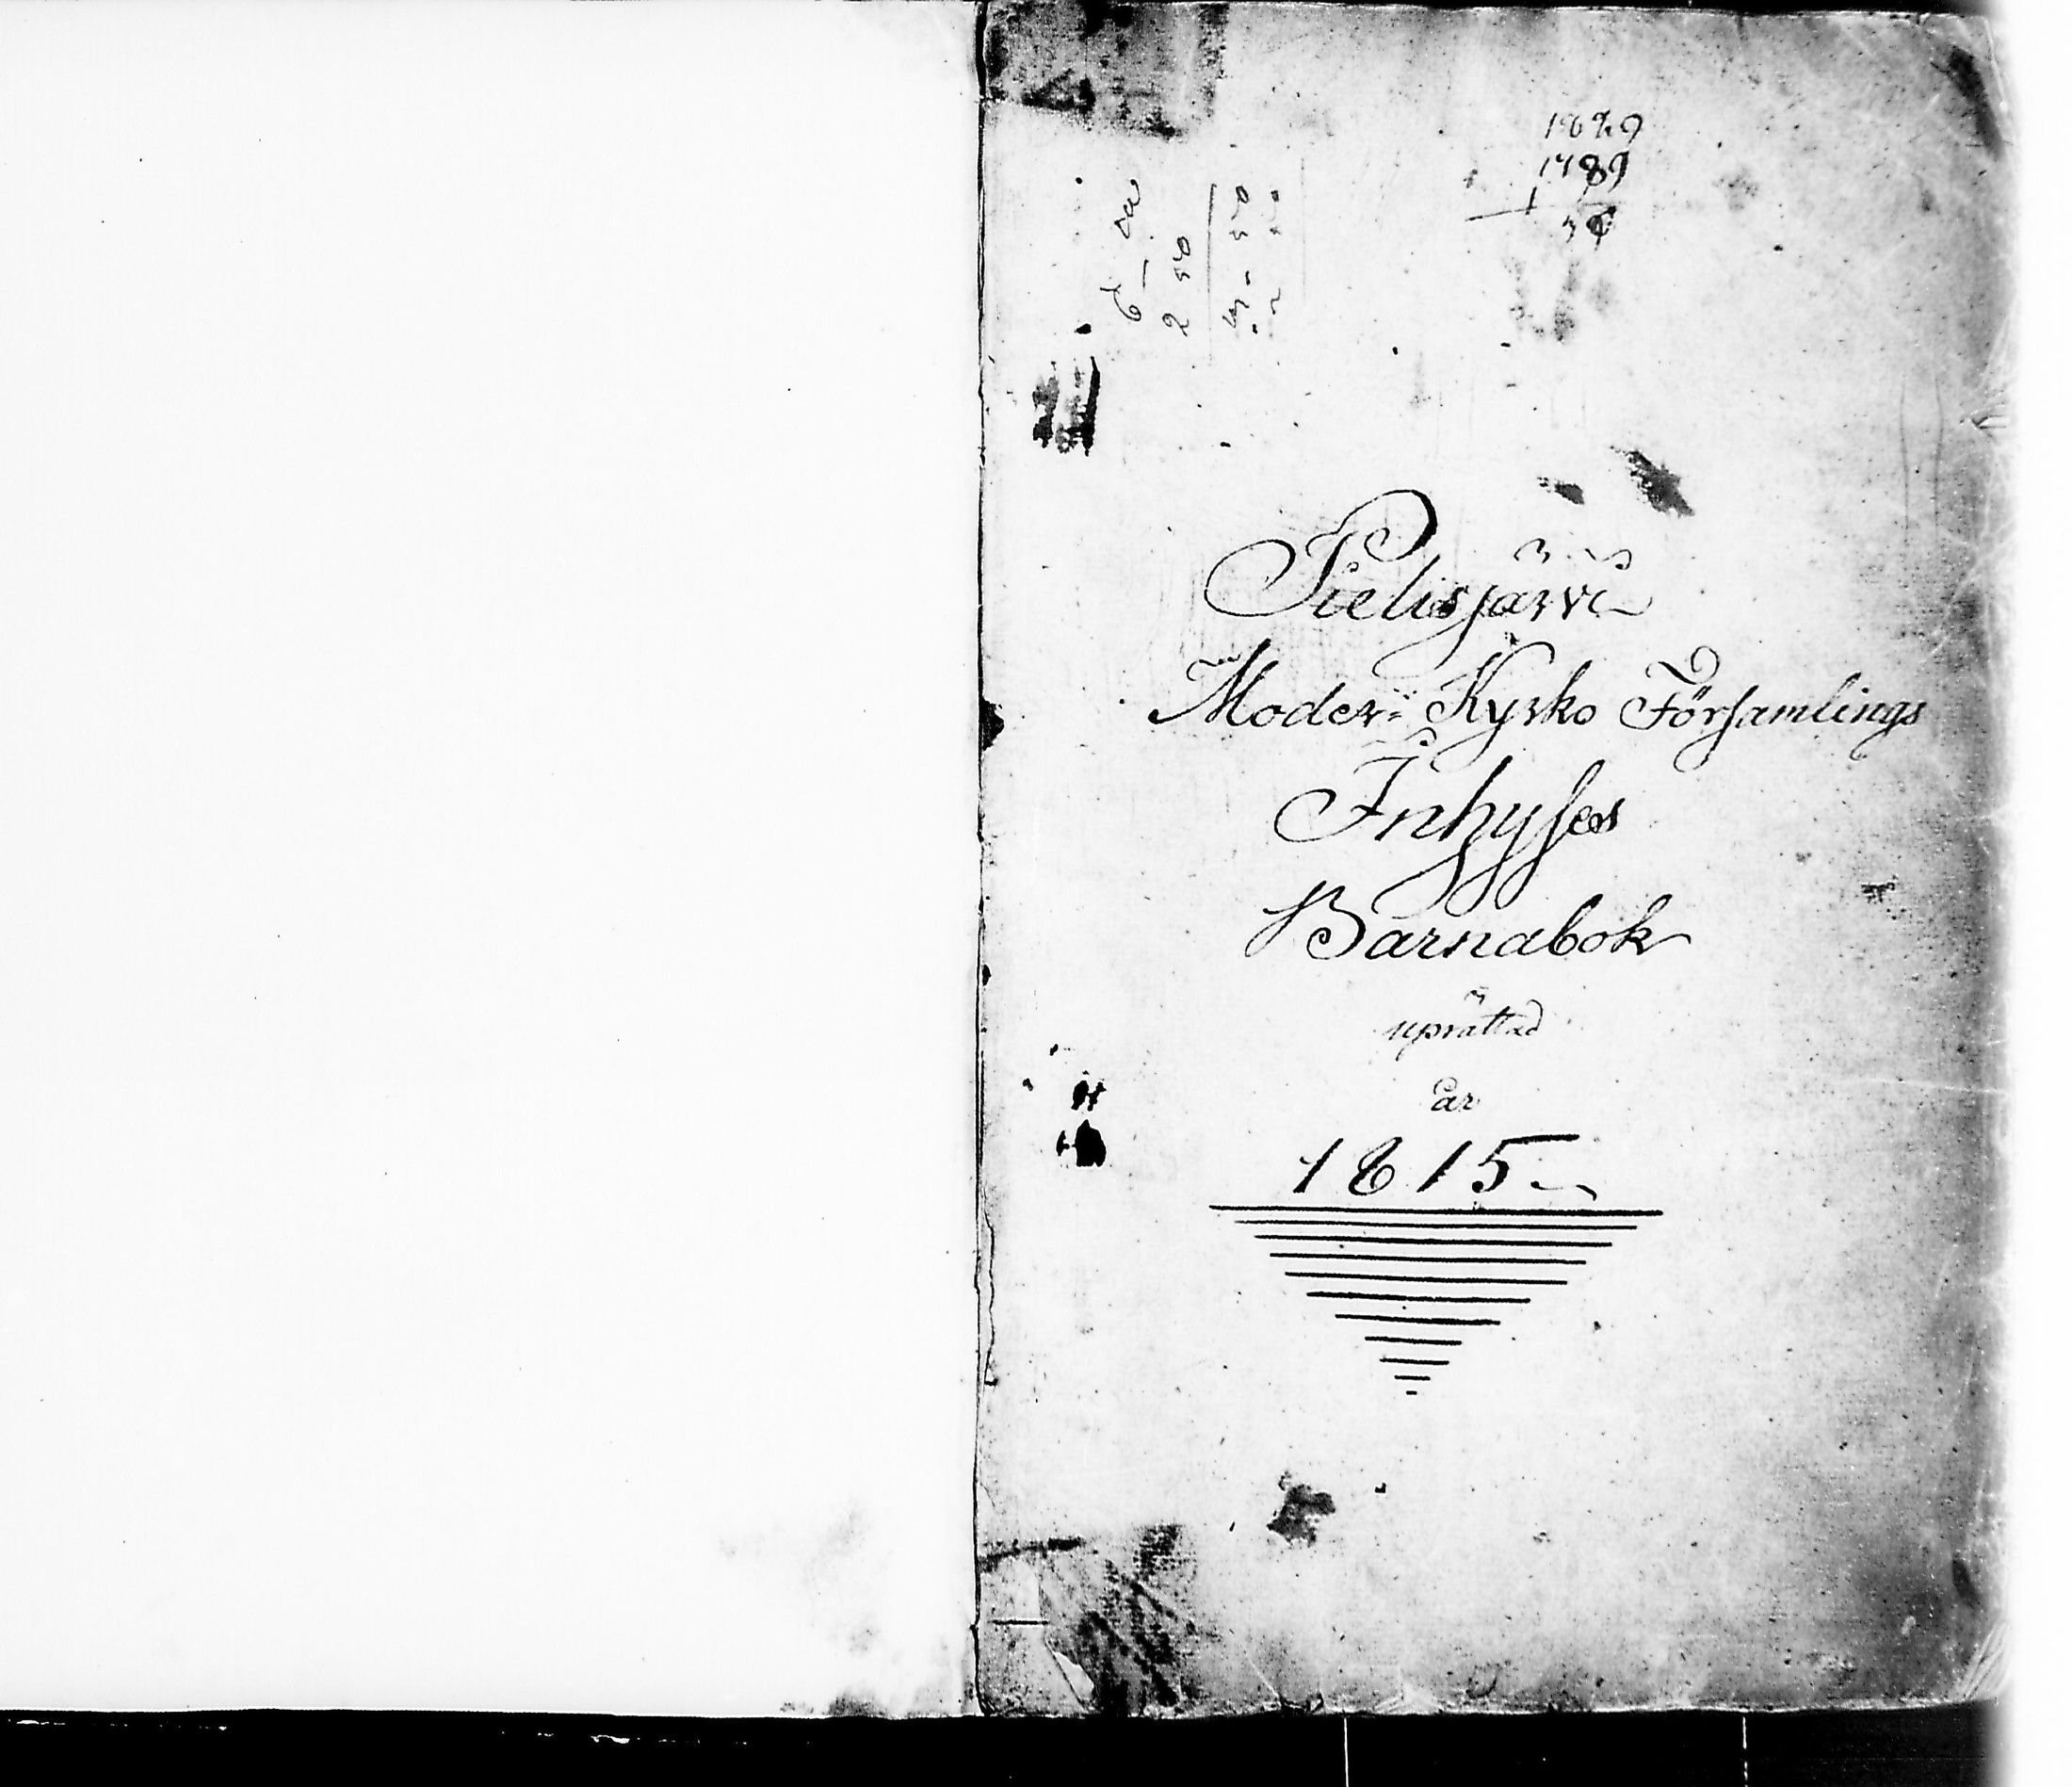 1789
Pielisjärvi
Moder= Kyrko Församlings
Inhyses
Barnabok
uprättad
år
1815